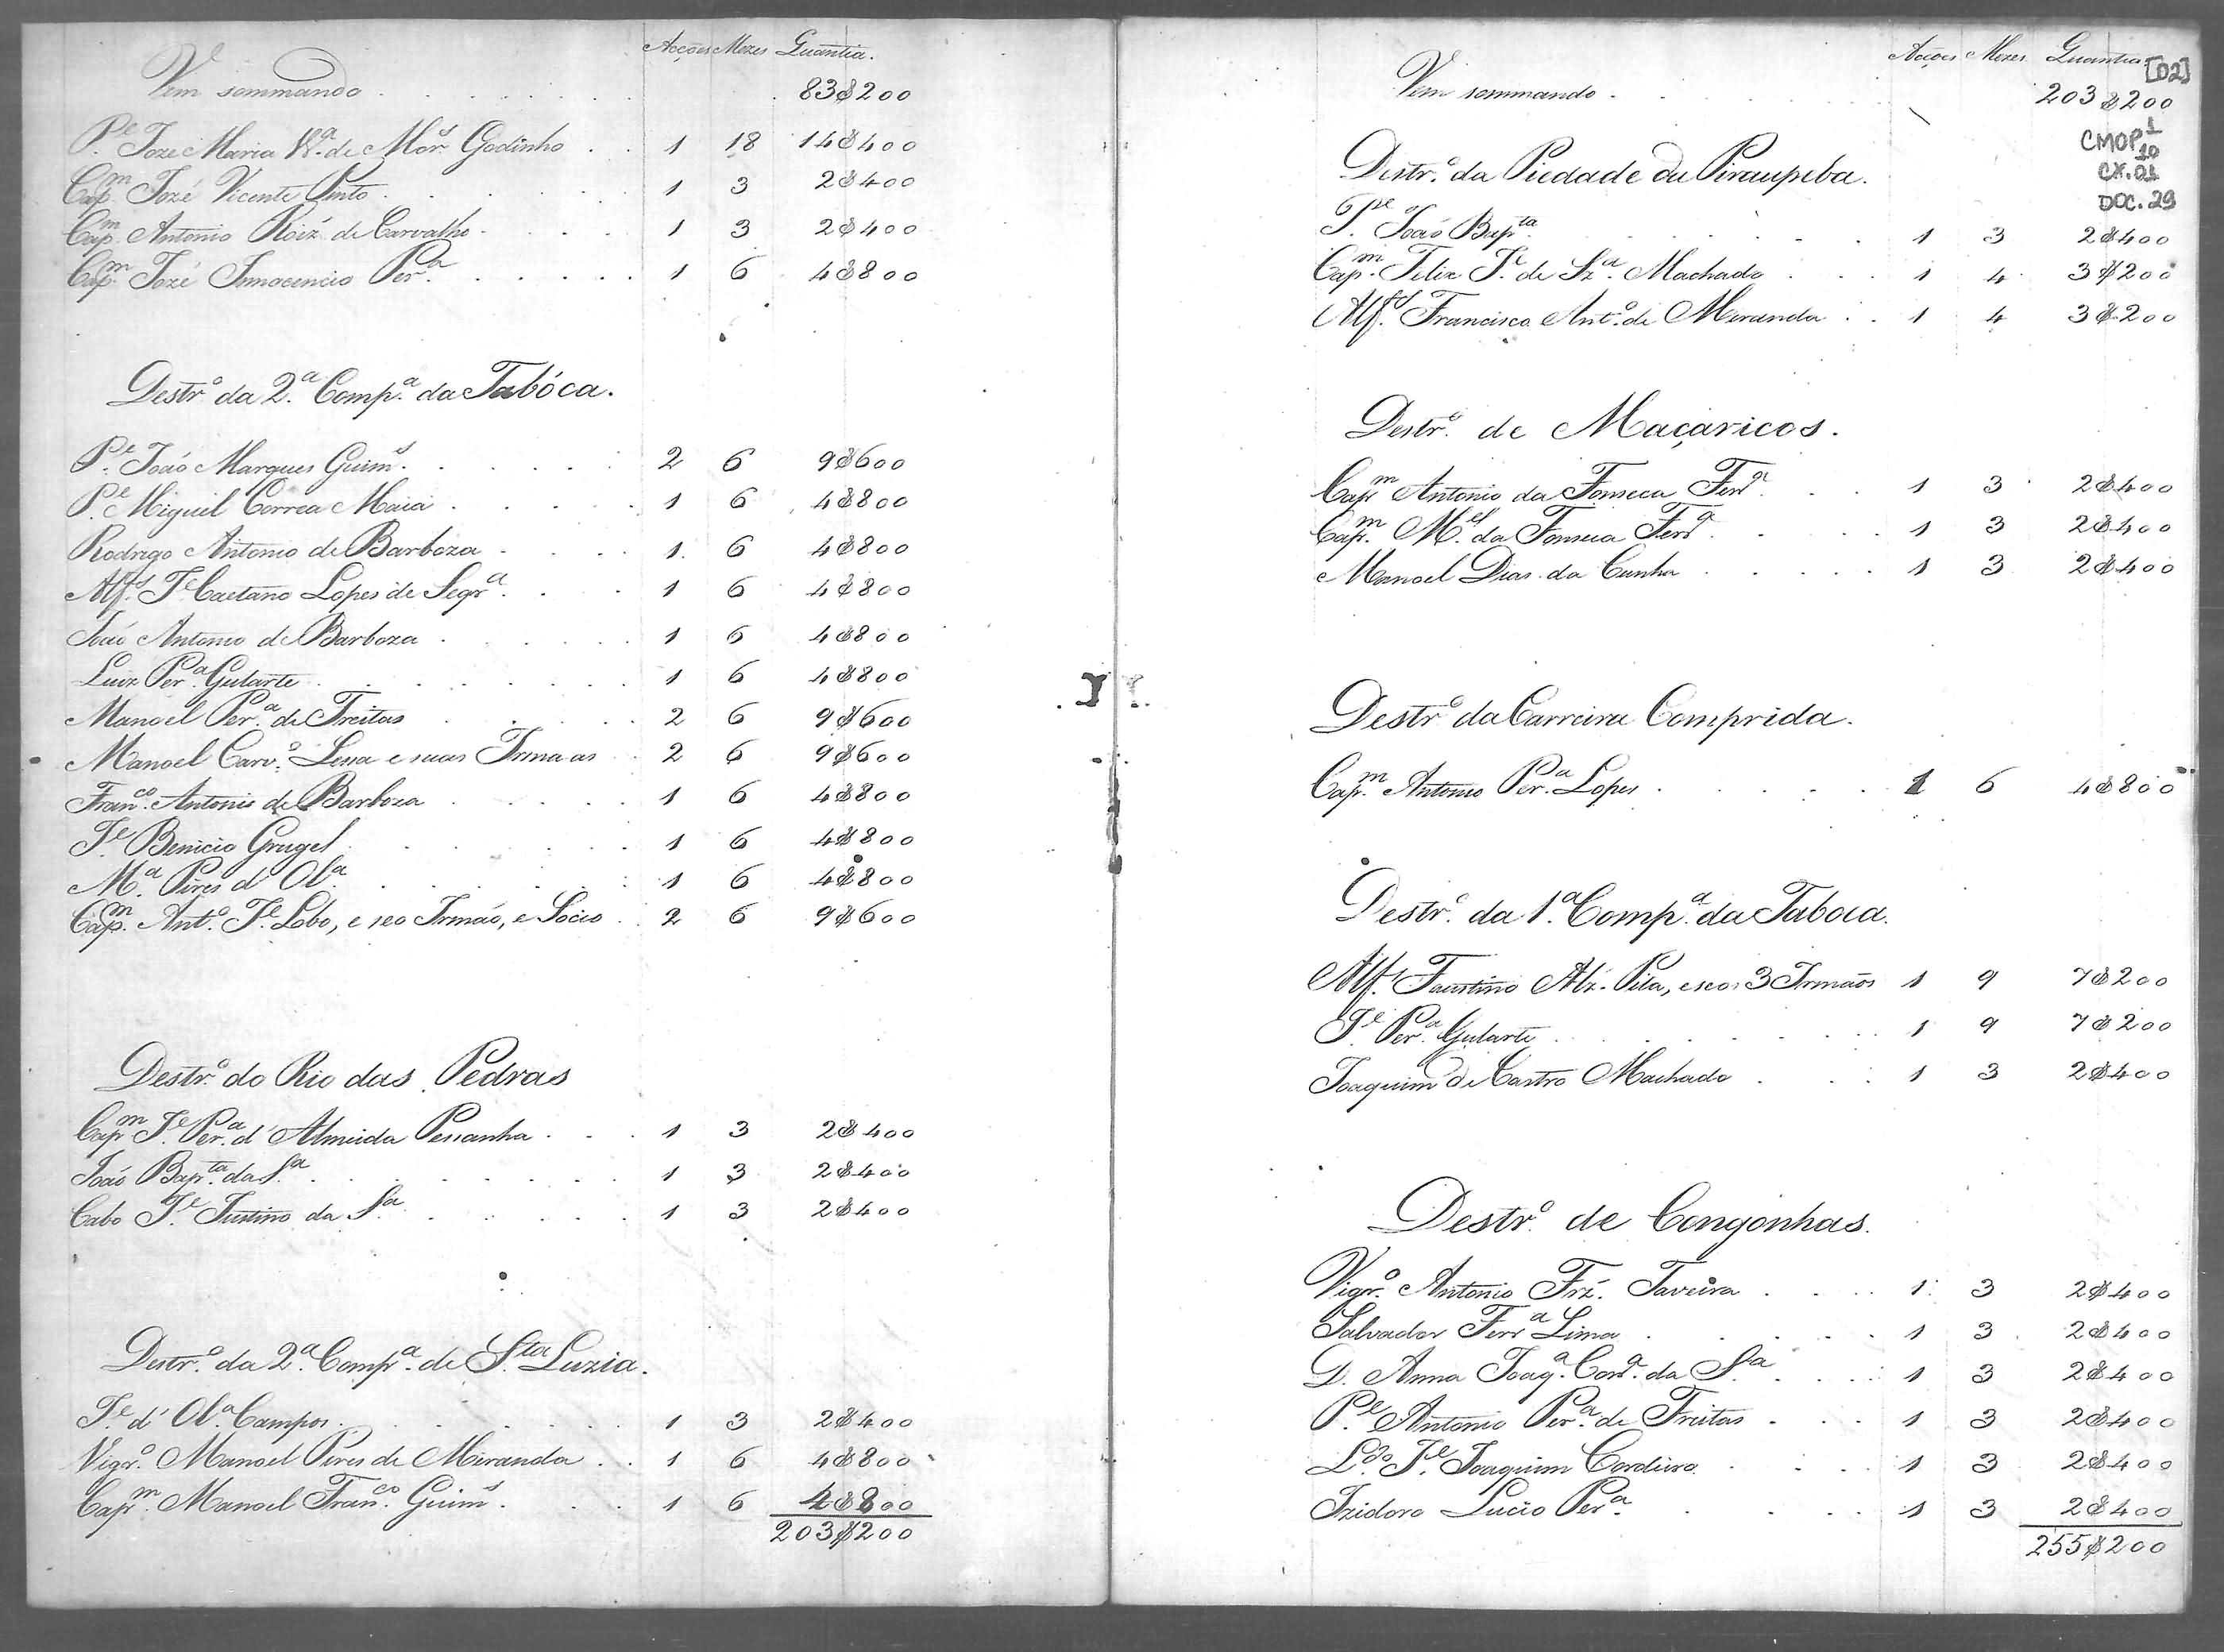 Acções Mezes Quantia.
Vem sommando . . . . . . . 83$200
P.e Joze Maria X.a de Mor.s Godinho . . 1 18 14$400
Cap.m Jozé Vicente Pinto . . . . . 1 3 2$400
Cap.m Antonio Roiz de Carvalho . . . . 1 3 2$400
Cap.m Jozé Innocencio Per.a . . . . . 1 6 4$800
Destr.o da 2.a Comp.a da Tabóca.
P.e João Marques Guim.s . . . . . 2 6 9$600
P.e Miguel Correa Maia . . . . . 1 6 4$800
Rodrigo Antonio de Barboza . . . . 1 6 4$800
Alf.s J.e Caetano Lopes de Segr.a . . . 1 6 4$800
João Antonio de Barboza . . . . . 1 6 4$800
Luiz Per.a Gularte . . . . . . . 1 6 4$800
Manoel Per.a de Freitas . . . . . 2 6 9$600
Manoel Carv.o Lessa e suas Irmaas . . 2 6 9$600
Fran.co Antonio de Barboza . . . . . 1 6 4$800
J.e Benicio Grugel . . . . . . 1 6 4$800
M.a Pires d' Ol.a . . . . . . . 1 6 4$800
Cap.m Ant.o J.e Lobo, e seo Irmão, e Socio . . 2 6 9$600
Destr.o do Rio das Pedras
Cap.m J.e Per.a d' Almeida Pessanha . . . 1 3 2$400
João Bap.ta da S.a . . . . . . . 1 3 2$400
Cabo J.e Justino da S.a . . . . . 1 3 2$400
Destr.o da 2.a Comp.a de S.ta Luzia.
J.e d' Ol.a Campos . . . . . . . 1 3 2$400
Vigr.o Manoel Pires de Miranda . . 1 6 4$800
Cap.m Manoel Fran.co Guim.s . . . 1 6 4$800
203$200
Acções Mezes Quantia.
[02]
Vem sommando . . . . . . 203$200
CMOP 1
10
CX. 01
DOC. 29
Destr.o da Piedade da Piraupeba.
P.e João Bap.ta . . . . . . 1 3 2$400
Cap.m Felix J.e de Sz.a Machado . . . 1 4 3$200
Alf.s Francisco Ant.o de Miranda . . 1 4 3$200
Destr.o de Maçaricos.
Cap.m Antonio da Fonseca Ferr.a . . . 1 3 2$400
Cap.m M.el da Fonseca Ferr.a . . . 1 3 2$400
Manoel Dias da Cunha . . . . . 1 3 2$400
Destr.o da Carreira Comprida.
Cap.m Antonio Per.a Lopes . . . . . 1 6 4$800
Destr.o da 1.a Comp.a da Taboca.
Alf.s Faustino Alz. Pita, e seos 3 Irmãos 1 9 7$200
J.e Per.a Gularte . . . . . . . 1 9 7$200
Joaquim de Castro Machado . . . . 1 3 2$400
Destr.o de Congonhas.
Vigr.o Antonio Frz. Taveira . . . . 1 3 2$400
Salvador Ferr.a Lima . . . . . . 1 3 2$400
D. Anna Joaq.a Cord.a da S.a . . . . 1 3 2$400
P.e Antonio Per.a de Freitas . . . 1 3 2$400
L.do J.e Joaquim Cordeiro . . . . 1 3 2$400
Izidoro Lucio Per.a . . . . . 1 3 2$400
255$200